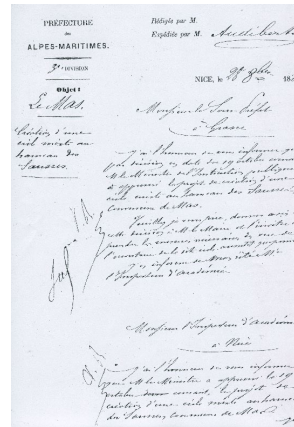 PRÉFECTURE
DES
ALPES-MARITIMES.
3e DIVISION
Objet :
Le Mas.
Création d'une
école mixte au
hameau des
Sausses.
Rédigée par M.
Expédiée par M. Audibert
NICE, 188
Monsieur le Sous-Préfet
à Grasse
J'ai l'honneur de vous informer que
par décision en date du 19 octobre courant
M. le Ministre de l'Instruction publique
a approuvé le projet de création d'une
école mixte au hameau des Sausses,
commune de Mas.
Veuillez, je vous prie, donner avis de
cette décision à M. le Maire, et l'inviter à
prendre les mesures nécessaires
l'ouverture de la dite école
J'en informe M.
l'Inspecteur d'Académie.
Monsieur l'Inspecteur d'Académie
à Nice
J'ai l'honneur de vous informer
que M. le Ministre a approuvé le 19
octobre courant, le projet de
création d'une école mixte au hameau
des Sausses, commune de Mas.